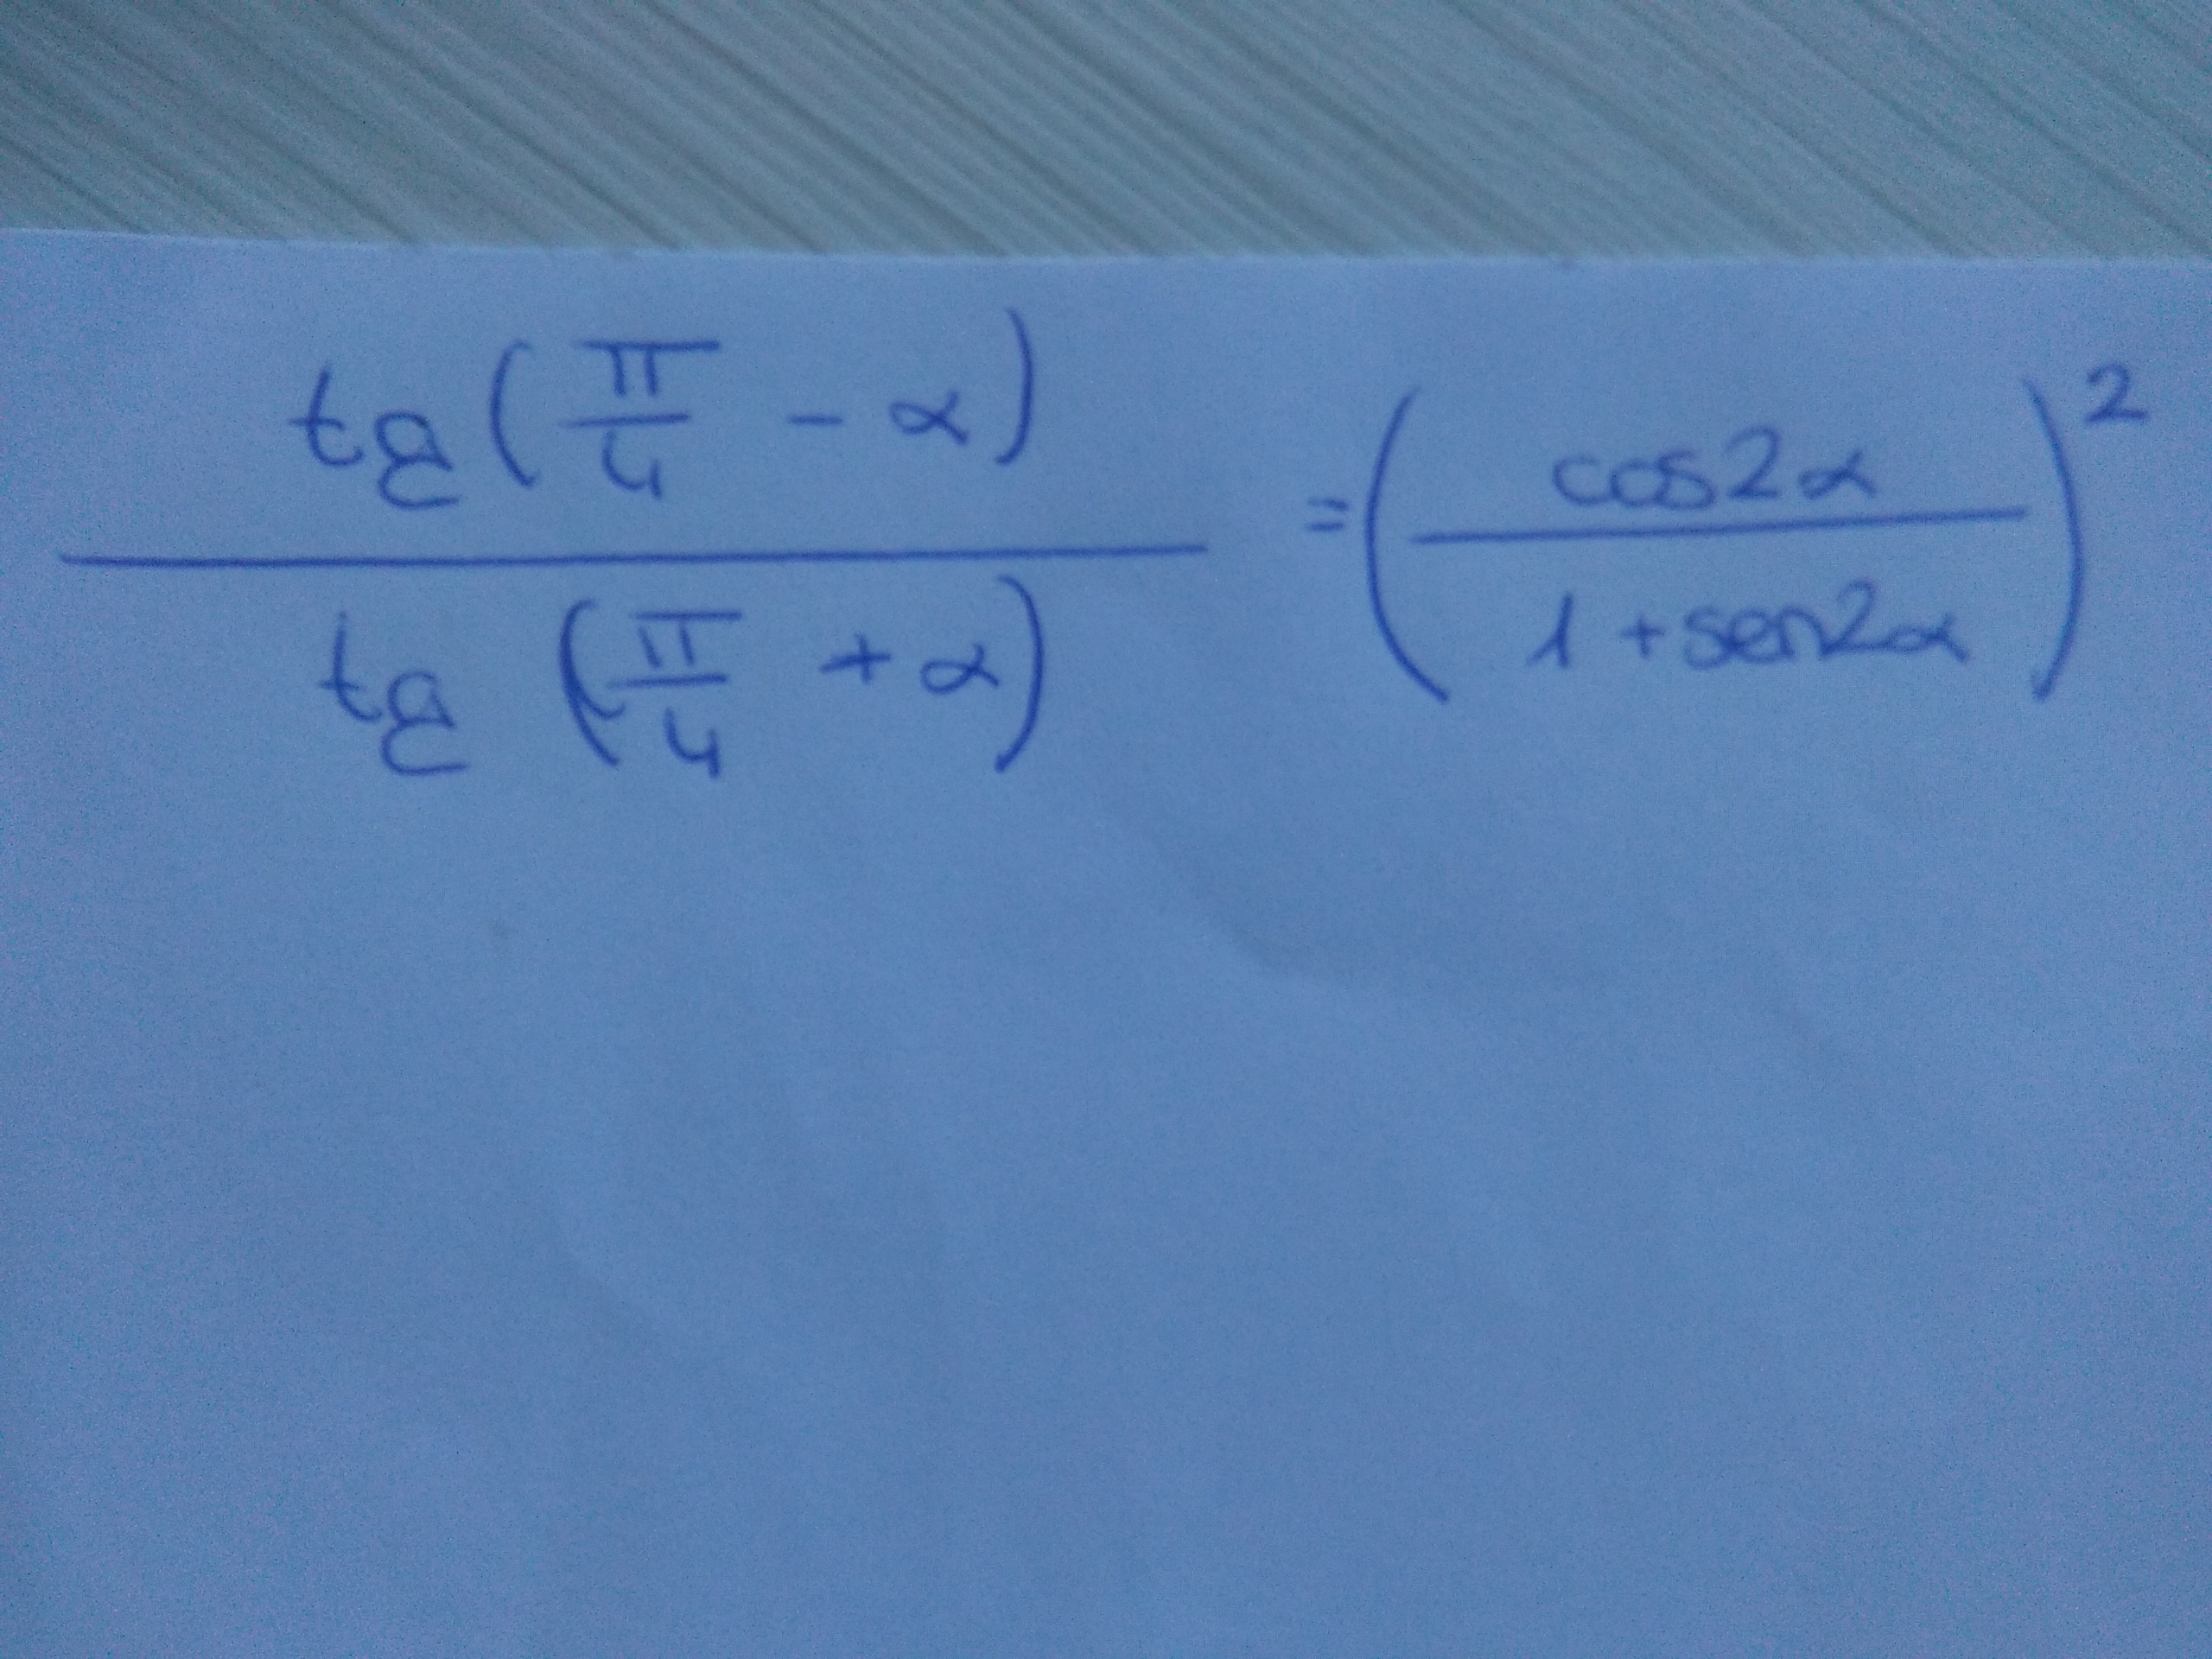 tg(π/4 - α) / tg(π/4 + α) = (cos2α / 1+sen2α)²